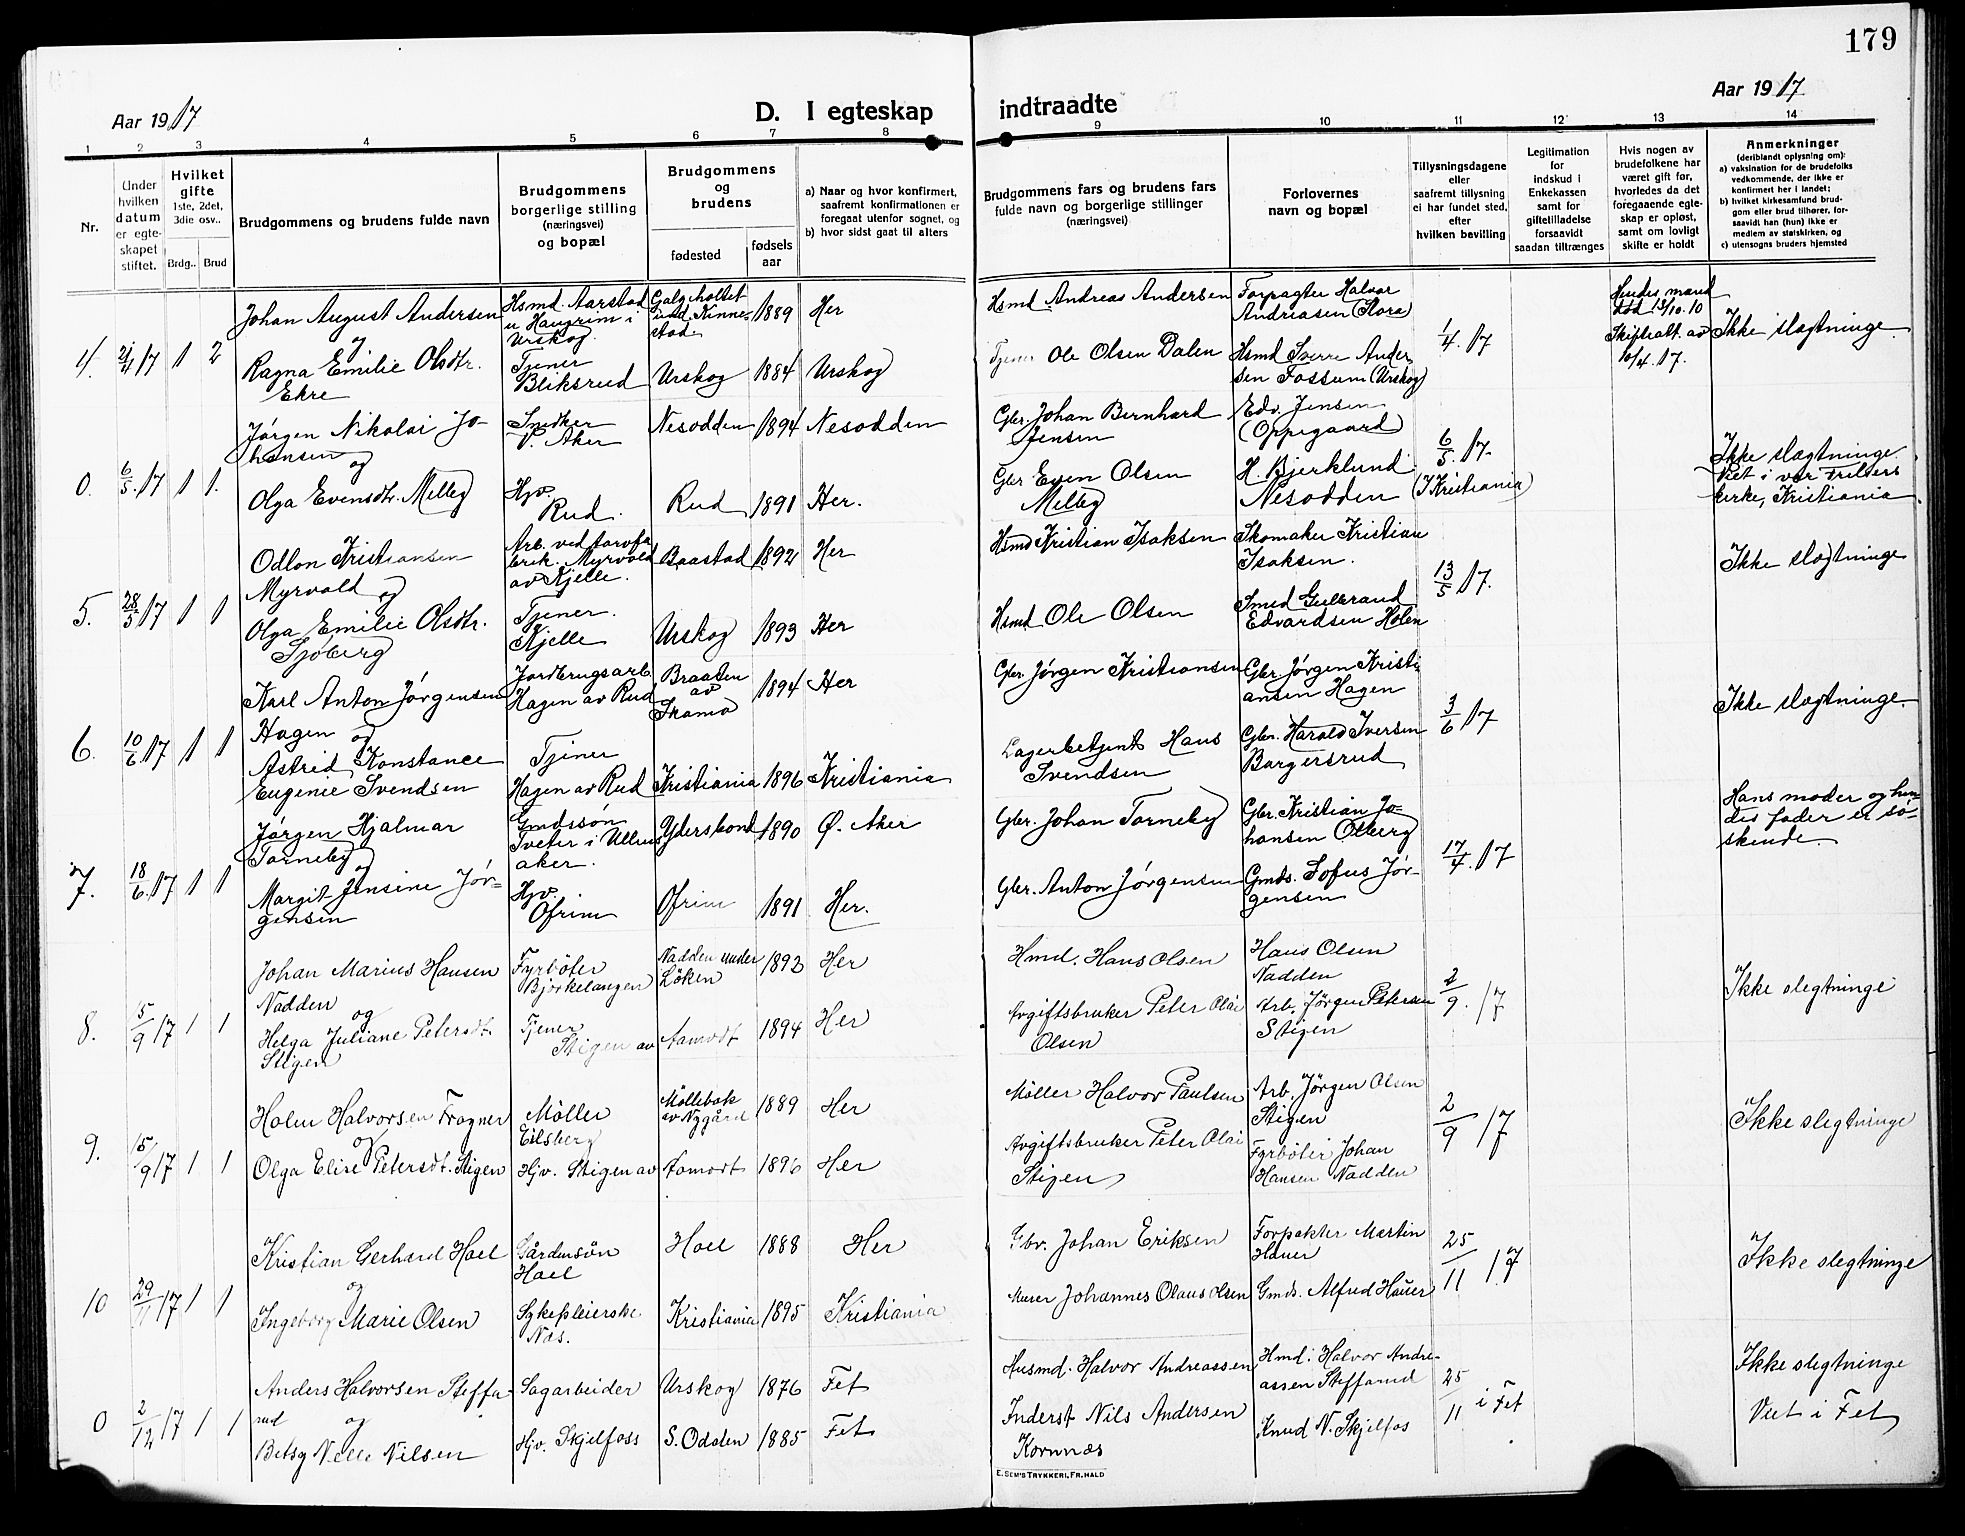 179
Aar 1917
D. I egteskap
indtraadte
Aar 1917
1 2 3 4 5 6 7 8 9 10 11 12 13 14
Nr.
Under hvilken datum er egteskapet stiftet.
Hvilket gifte 1ste, 2det, 3die osv..
Brdg.. Brud
Brudgommens og brudens fulde navn
Brudgommens borgerlige stilling (næringsvei) og bopæl
Brudgommens og brudens
fødested
fødsels aar
a) Naar og hvor konfirmert, saafremt konfirmationen er foregaat utenfor sognet, og
b) hvor sidst gaat til alters
Brudgommens fars og brudens fars fulde navn og borgerlige stillinger (næringsvei)
Forlovernes navn og bopæl
Tillysningsdagene eller saafremt tillysning ei har fundet sted, efter hvilken bevilling
Legitimation for indskud i Enkekassen samt for giftetilladelse forsaavidt saadan tiltrænges
Hvis nogen av brudefolkene har været gift før, hvorledes da det foregaaende egteskap er opløst, samt om lovligt skifte er holdt
Anmerkninger (deriblandt oplysning om):
a) vaksination for de brudefolks vedkommende, der ikke er konfirmert her i landet;
b) hvilket kirkesamfund brudgom eller brud tilhører, forsaavidt han (hun) ikke er medlem av statskirken, og
c) utensogns bruders hjemsted
4. 21/4 17 1 2
Johan August Andersen
og
Ragna Emilie Olsdtr.
Ekre
Hsmd. Aarstad
u Haugrim i
Urskog
Tjener
Bliksrud
Galgeholtet
und. Kinne-
stad
1889 Her
Urskog 1884 Urskog
Hsmd Andreas Andersen
Tjener Ole Olsen Dalen
Forpagter Halvor
Andreasen (Hora)
Hsmd Sverre Ander
sen Fossum (Urskog)
1/4. 17
Hendes mand
død 13/10. 10
Skifteatt. av
10/4. 17.
Ikke slægtninge
0. 6/5. 17 1 1.
Jørgen Nikolai Jo-
hansen
og
Olga Evensdtr. Melby
Snedker
V. Aker
Hjv.
Rud.
Nesodden 1894 Nesodden
Rud 1891 Her.
Gbr Johan Bernhard
Jensen
Gbr Even Olsen
Melby
Edv. Jensen
(Oppegaard)
H. Bjerklund
Nesodden
6/5. 17.
(I Kristiania)
Ikke slægtninge.
Viet i vor Frelsers
kirke, Kristiania
5. 28/5 17 1 1
Odlon Kristiansen
Myrvold og
Olga Emilie Olsdtr.
Sjøberg
Arb. ved tørvfa
brik. Myrvold
av Kjelle.
Tjener.
Kjelle
Baastad 1892 Her
Urskog 1893 Her
Hsmd Kristian Isaksen
Hsmd Ole Olsen
Skomaker Kristian
Isaksen.
Smed Gulbrand
Edvardsen Holen
13/5 17.
Ikke slægtninge
6. 10/6 17 1 1
Karl Anton Jørgensen
Hagen og
Astrid Konstance
Eugenie Svendsen
Jordbrugsarb
Hagen av Rud
Tjener
Hagen av Rud
Braaten
av
Skamo
1894 Her
Kristiania 1896 Kristiania
Gbr. Jørgen Kristiansen
Lagerbetjent Hans
Svendsen
Gbr Jørgen Kristi-
ansen Hagen
Gbr. Harald Iversen
Borgersrud
3/6 17
Ikke slægtninge.
7. 18/6. 17 1 1
Jørgen Hjalmar
Torneby
og
Margit Jensine Jør-
gensen
Gmdssøn
Tveter i Ullens
aker.
Hjv.
Ofrim
1890 Ø. Aker
Ofrim 1891 Her.
Gbr. Johan Torneby
Gbr. Anton Jørgensen
Gbr. Kristian Jo-
hansen Olberg
Gmds. Sofus Jør-
gensen
17/4. 17
Hans moder og hen
des fader er sø-
skende.
8. 15/9 17 1 1
Johan Marius Hansen
Nadden
og
Helga Juliane Petersdt.
Stigen
Fyrbøter
Bjørkelangen
Tjener
Stigen av
Nadden under
Løken
1893 Her
Aamodt 1894 Her
Hmd. Hans Olsen
Avgiftsbruker Peter Olai
Olsen
Hans Olsen
Nadden
Arb. Jørgen Petersen
Stigen
2/9. 17
Ikke slegtninge
9. 15/9 17 1 1
Holm Halvorsen Frogner
og
Olga Elise Petersdt. Stigen
Møller
Eilsberg
Hjv. Stigen av
Møllebak
av Nygård
1889 Her
Aamodt 1896 Her
Møller Halvor Paulsen
Avgiftsbruker Peter Olai
Stigen
Arb. Jørgen Olsen
Stigen
Fyrbøter Johan
Hansen Nadden
2/9 17
Ikke slegtninge
10 29/11 17 1 1
Kristian Gerhard Hoel
og
Ingeborg Marie Olsen
Gårdmsøn
Hoel
Sykepleierske
Næs.
Hoel 1888 Her
Kristiania 1895 Kristiania
Gbr. Johan Eriksen
Murer Johannes Olaus Olsen
Forpakter Martin
Hauer
Gmds. Alfred Hauer
25/11 17
Ikke slegtninge
0 2/12 17 1 1
Anders Halvorsen Steffa-
rud
og
Betsy Nelle Nilsen
Sagarbeider
Hjv. Skjelfoss
Urskog 1876 Fet
S. Odalen 1885 Fet
Husmd. Halvor Andreassen
Inderst Nils Andersen
Kornnæs
Hmd. Halvor Andre-
assen Steffarud
Knud N. Skjelfos
25/11 i Fet
Ikke slegtninge
Viet i Fet
E. SEM'S TRYKKERI, FR. HALD